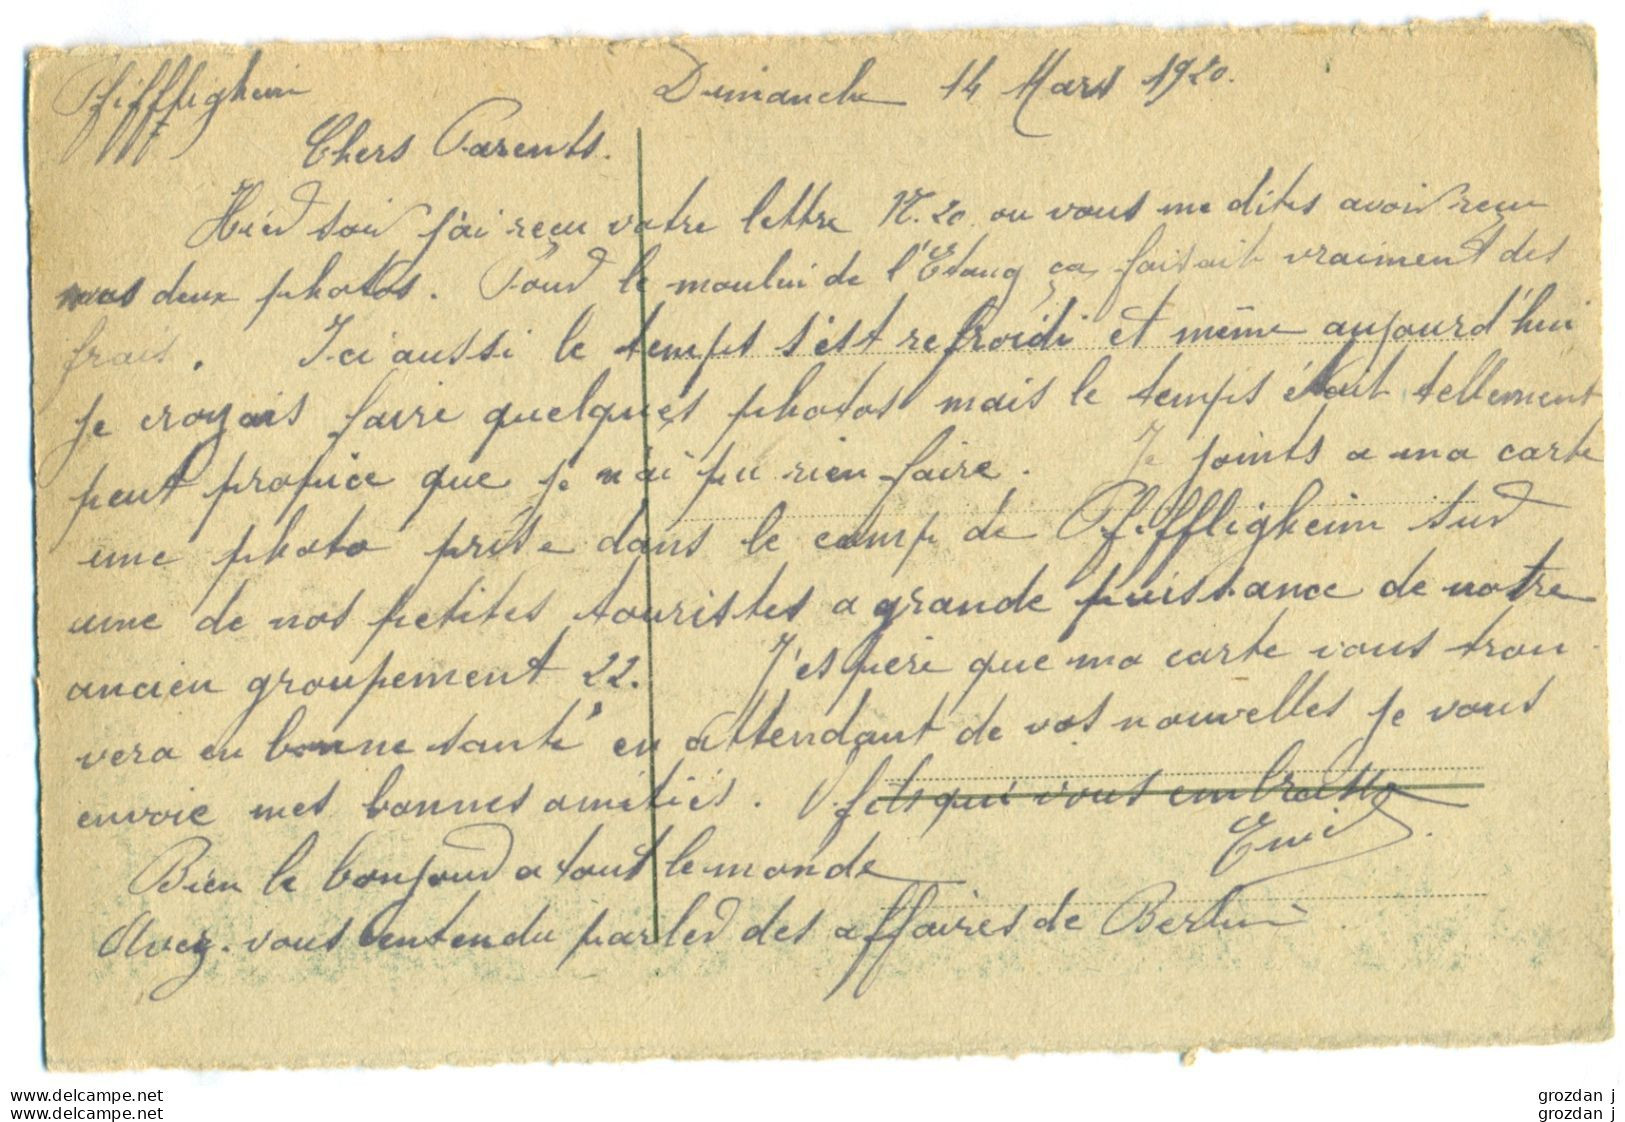 Pfiffligheim Dimanche 14 Mars 1920.
Chers Parents.
Hier soir j'ai reçu votre lettre N. 20 ou vous me dites avoir reçu
mes deux photos. Pour le moulin de l'Etang ça faisait vraiment des
frais. Ici aussi le temps s'est refroidi et même aujourd'hui
je croyais faire quelques photos mais le temps était tellement
peut propice que je n'ai pu rien faire. Je joints a ma carte
une photo prise dans le camp de Pfiffligheim sur
une de nos petites touristes a grande puissance de notre
ancien groupement 22. J'espère que ma carte vous trou-
vera en bonne santé en attendant de vos nouvelles je vous
envoie mes bonnes amitiés. V. fils qui vous embrasse
Emil
Bien le bonjour a tout le monde
Avez-vous entendu parler des affaires de Berlin
www.delcampe.net
www.delcampe.net
grozdan j
grozdan j